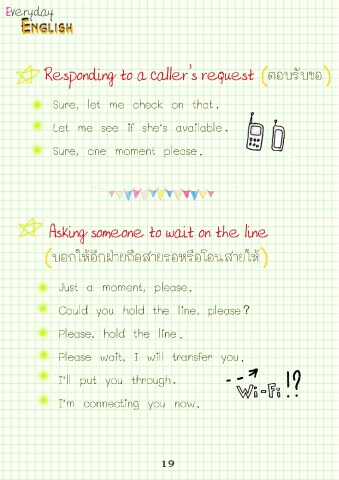 Everyday
ENGLISH
Responding to a caller's request (ตอบรับขอ)
Sure, let me check on that.
Let me see if she's available.
Sure, one moment please.
Asking someone to wait on the line
(บอกให้อีกฝ่ายถือสายรอหรือโอนสายให้)
Just a moment, please.
Could you hold the line, please?
Please, hold the line.
Please wait, I will transfer you.
I'll put you through.
I'm connecting you now.
Wi-Fi!?
19